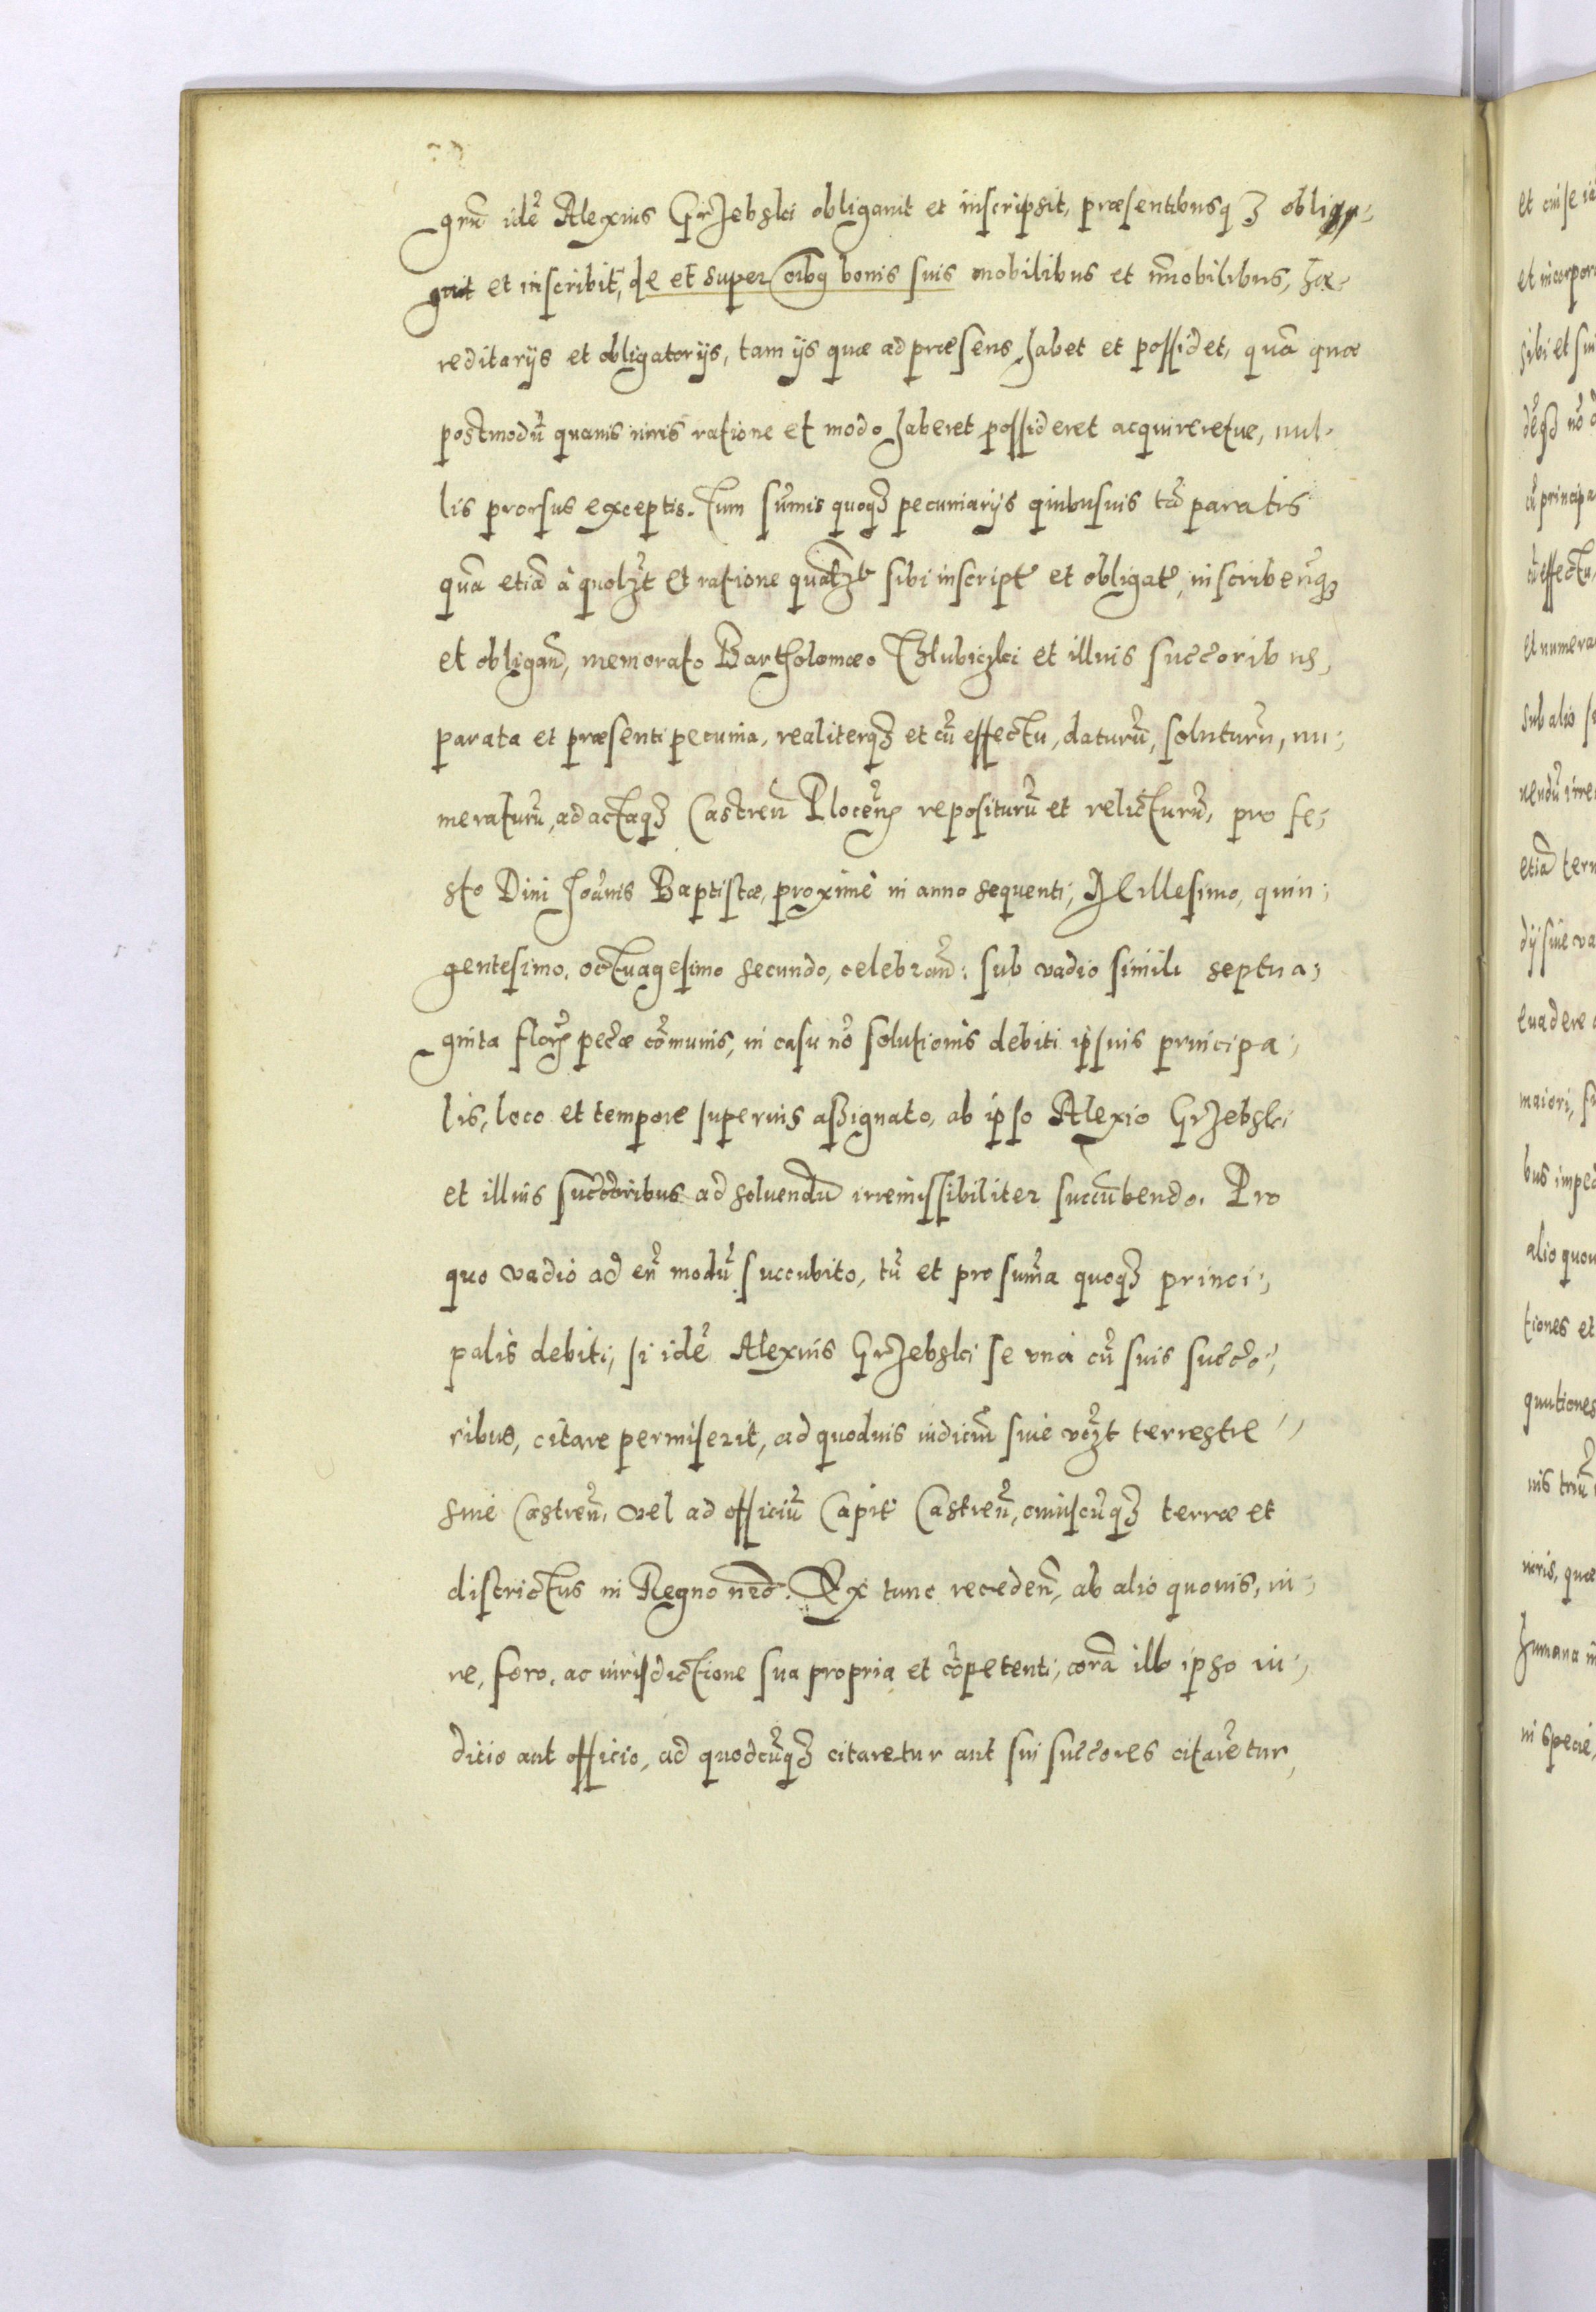 gnũ idẽ Alexius Grzebski obligauit et inscripsit, præsentibusqȝ obliga-
uit et inscribit, de et super oĩbq bonis suis mobilibus et im̃obilibus, hæ-
reditarijs et obligatorijs, tam ijs quæ ad præsens habet et possidet, quã quæ
postmodũ quauis iuris ratione et modo haberet possideret acquireretue, nul-
lis prorsus exceptis. Tum sum̃is quoqȝ pecuniarijs quibusuis tã paratis
quã etiã à quolȝt et ratione qualȝt sibi inscript̃ et obligat̃, inscribeñqȝ
et obligañ, memorato Bartholomæo Chlubiczki et illius succoribus,
parata et præsenti pecunia, realiterqȝ et cũ effectu, daturũ, soluturũ, nu-
meraturũ, ad actaqȝ Castreñ Ploceñ repositurũ et relicturũ, pro fe-
sto Diui Joãnis Baptistæ, proximè in anno sequenti, Millesimo, quin-
gentesimo, octuagesimo secundo, celebrañ: sub vadio simili septua-
ginta florẽ pecc̃æ cõmunis, in casu nõ solutionis debiti ipsius principa-
lis, loco et tempore superius assignato, ab ipso Alexio Grzebski
et illius succcoribus ad soluendũ irremissibiliter succũbendo. Pro
quo vadio ad eũ modũ succubito, tũ et pro sum̃a quoqȝ princi-
palis debiti, si idẽ Alexius Grzebski se vna cũ suis succo-
ribus, citare permiserit, ad quoduis iudiciũ siue vȝt terrestre
siue Castreñ, vel ad officiũ Capit̃ Castreñ, cuiuscũqȝ terræ et
districtus in Regno nr̃o. Ex tunc recedeñ, ab alio quouis, iu-
re, foro, ac iurisdictione sua propria et cõpetenti, corã illo ipso iu-
dicio aut officio, ad quodcũqȝ citaretur aut sui succores citarẽtur,